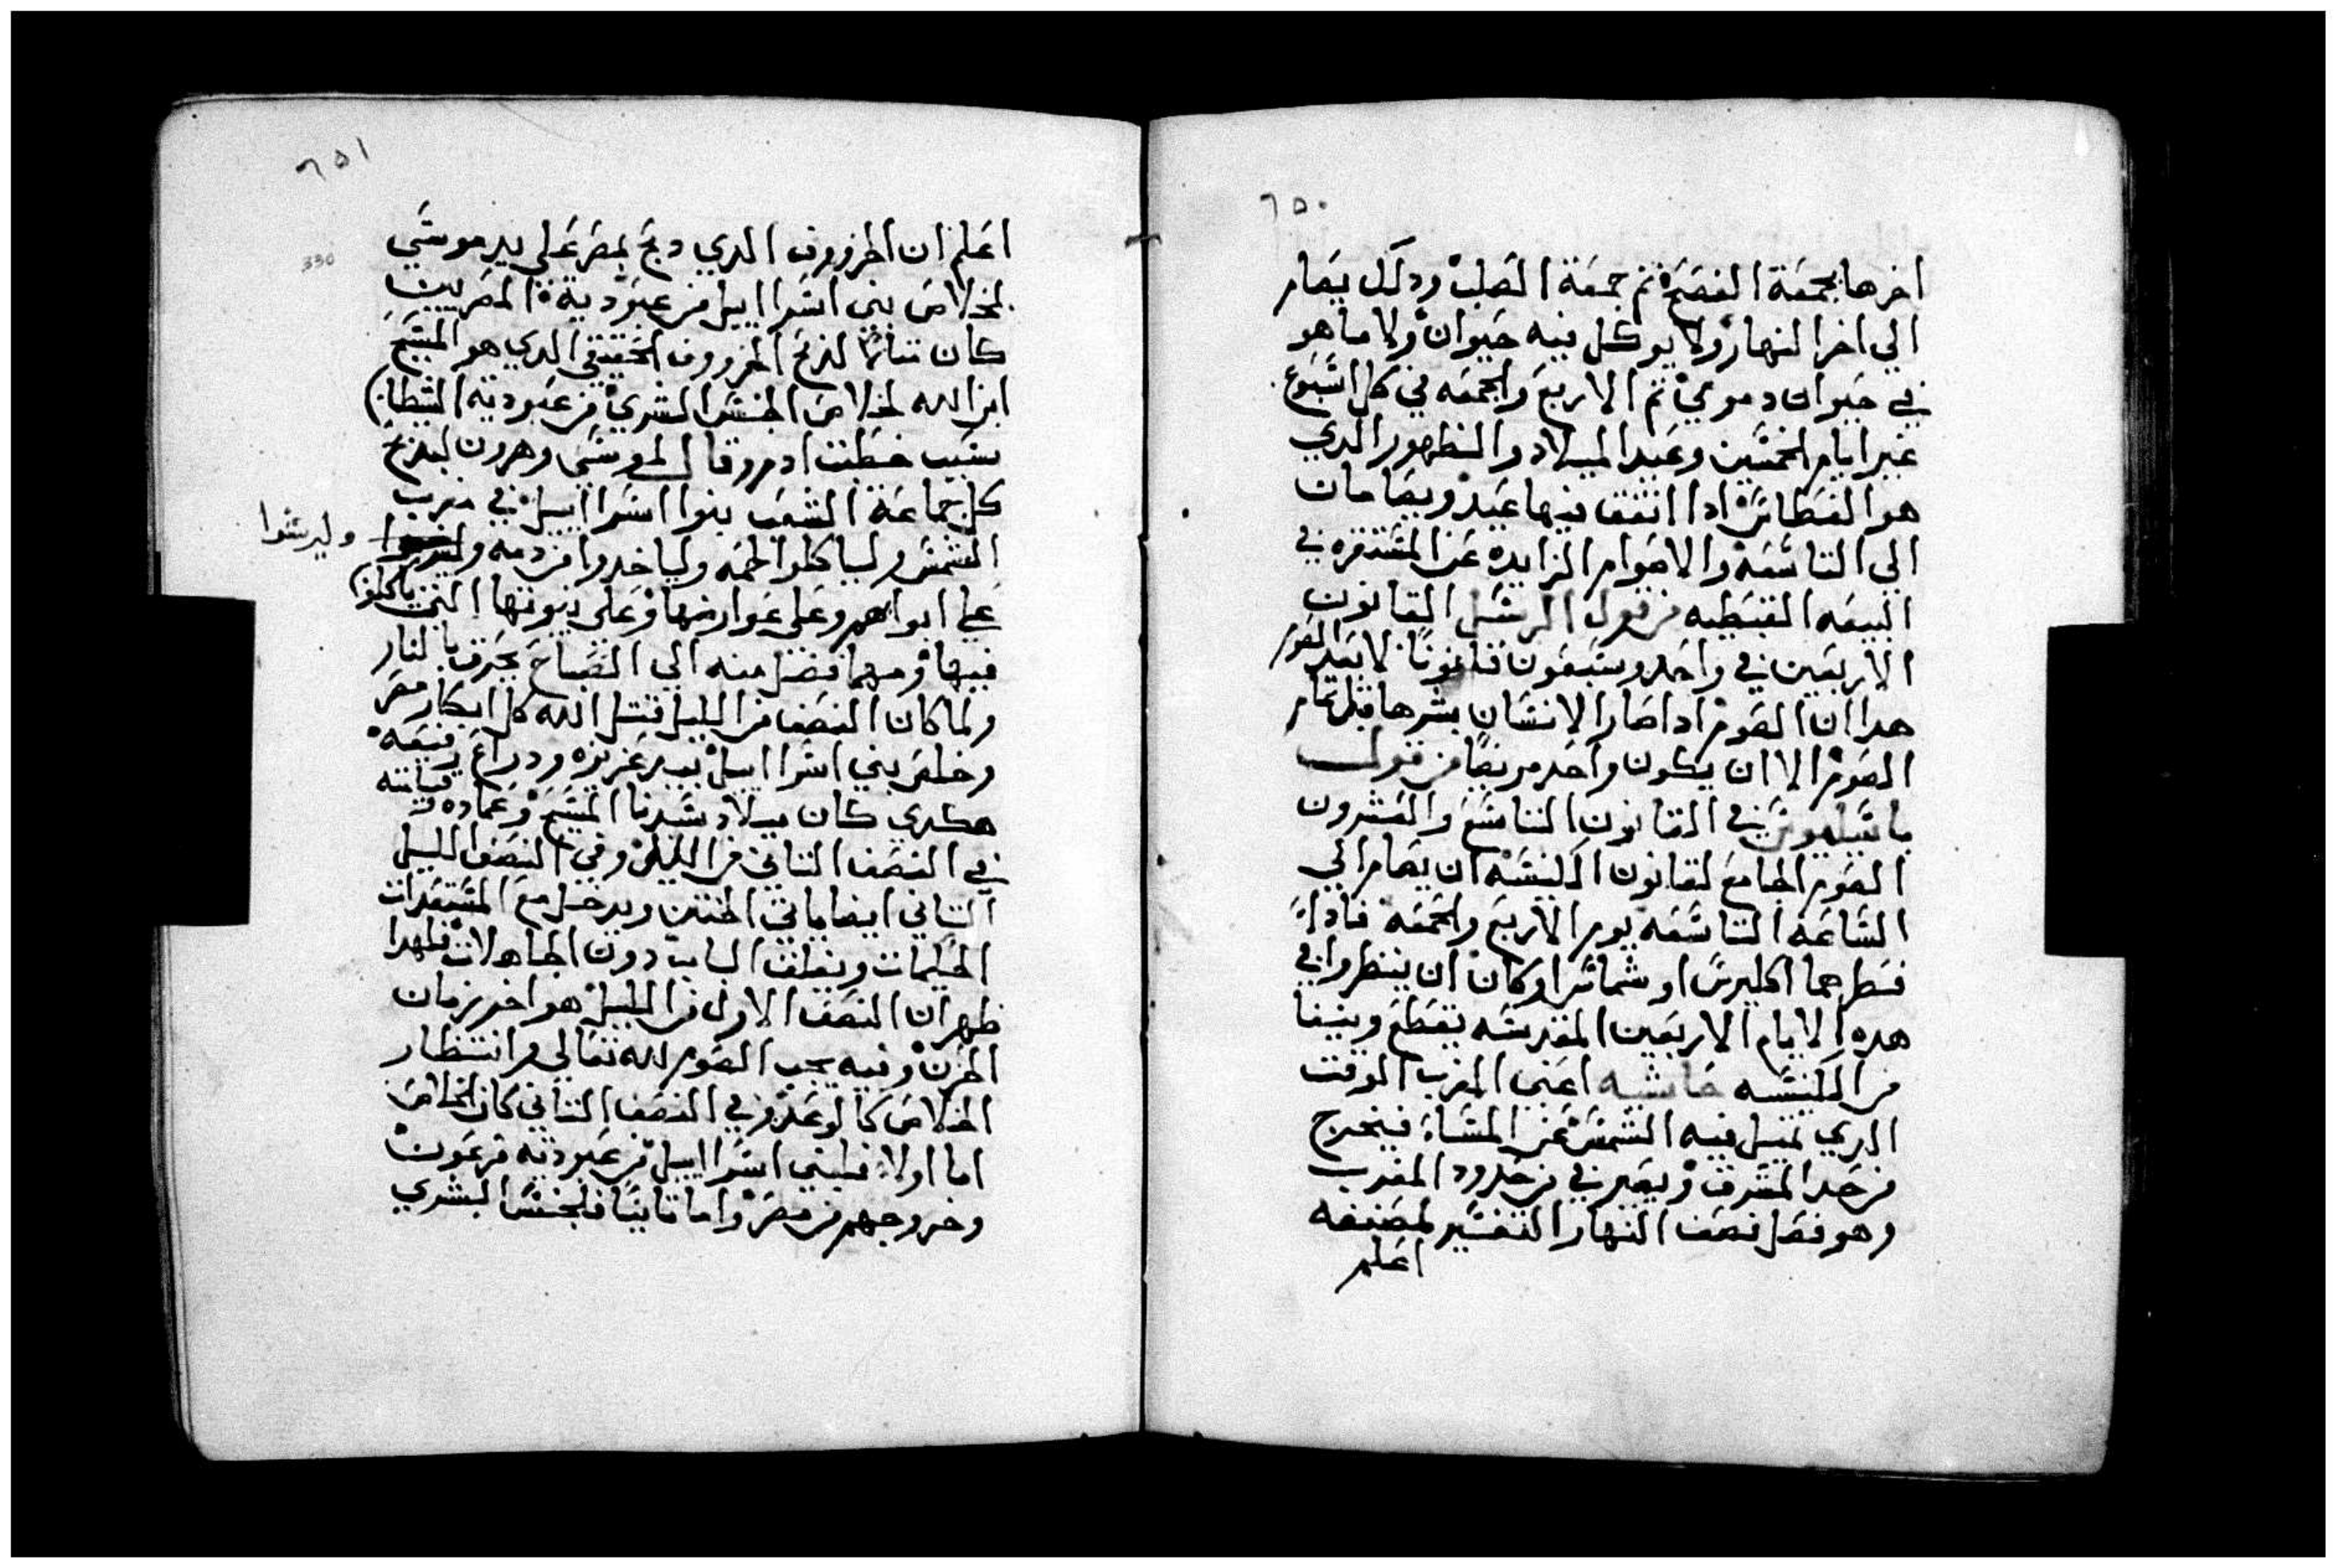 ٦٥٠
اخرها بجمعة الفصح ثم جمعة الصلب ودلك يصام
الي اخر النهار ولا يوكل فيه حيوان ولا ما هو
في حيوان دموي ثم الاربع والجمعه في كل اسبوع
غير ايام الخمسين وعيد الميلاد والظهور الدي
هو الغطاس ادا اتفق فيها عيد ويصامان
الي التاسعه والاصوام الزايده عن المستقره في
البيعه القبطيه من قول الرسل القانون
الاربعين في واحد وسبعون قانونًا لا بعد الصوم
هدا ان الصوم ادا صار الانسان بشرها قبل تمام
الصوم الا ان يكون واحد مريضًا من قول
باسيليوس في القانون التاسع والعشرون
الصوم الجامع لقانون الكنيسه ان يصام الي
الساعة التاسعه يوم الاربع والجمعه فادا
فطرهما اكليرس او شماس او كان ان ينظروا في
هده الايام الاربعين المقدسه يقطع وينفا
من الكنيسه حاشيه اعني المغرب الوقت
الدي تميل فيه الشمس عن المساء فيخرج
من حد المشرق ويصير في من حدود المغرب
وهو فصل نصف النهار التفسير لمصنفه
اعلم
٦٥١
330
اعلم ان الخروف الدي دبح بمصر علي يد موسي
لخلاص بني اسراييل من عبودية المصريين
كان تتامًا لدبح الخروف الحقيقي الدي هو المسيح
ابن الله لخلاص الجنس البشري من عبودية الشيطان
بسبب خطية ادم وقال لموسي وهرون ليدبح
كل جماعة الشعب بنوا اسراييل في مغرب
الشمس ولياكلوا لحمه ولياخدوا من دمه
وليرشوا
علي ابوابهم وعلي عوارضها وعلي بيوتها التي ياكلوا
فيها ومهما فضل منه الي الصباح يحرق بالنار
ولما كان النصف من الليل قتل الله كل ابكار مصر
وخلص بني اسراييل بيد عزيزه ودراع رفيعه
هكدي كان ميلاد سيدنا المسيح وعماده وقيامته
في النصف التاني من الليل وفي النصف الليل
التاني ايضا ياتي الختن ويدخل مع المستعدات
الحكيمات ويغلق الباب دون الجاهلات فلهدا
ظهر ان النصف الاول من الليل هو اخر زمان
الحزن وفيه يجب الصوم لله تعالي وانتظار
الخلاص كالوعد وفي النصف التاني كان الخلاص
اما اولا فلبني اسراييل من عبودية فرعون
وخروجهم من مصر واما تانيا فلجنس البشري